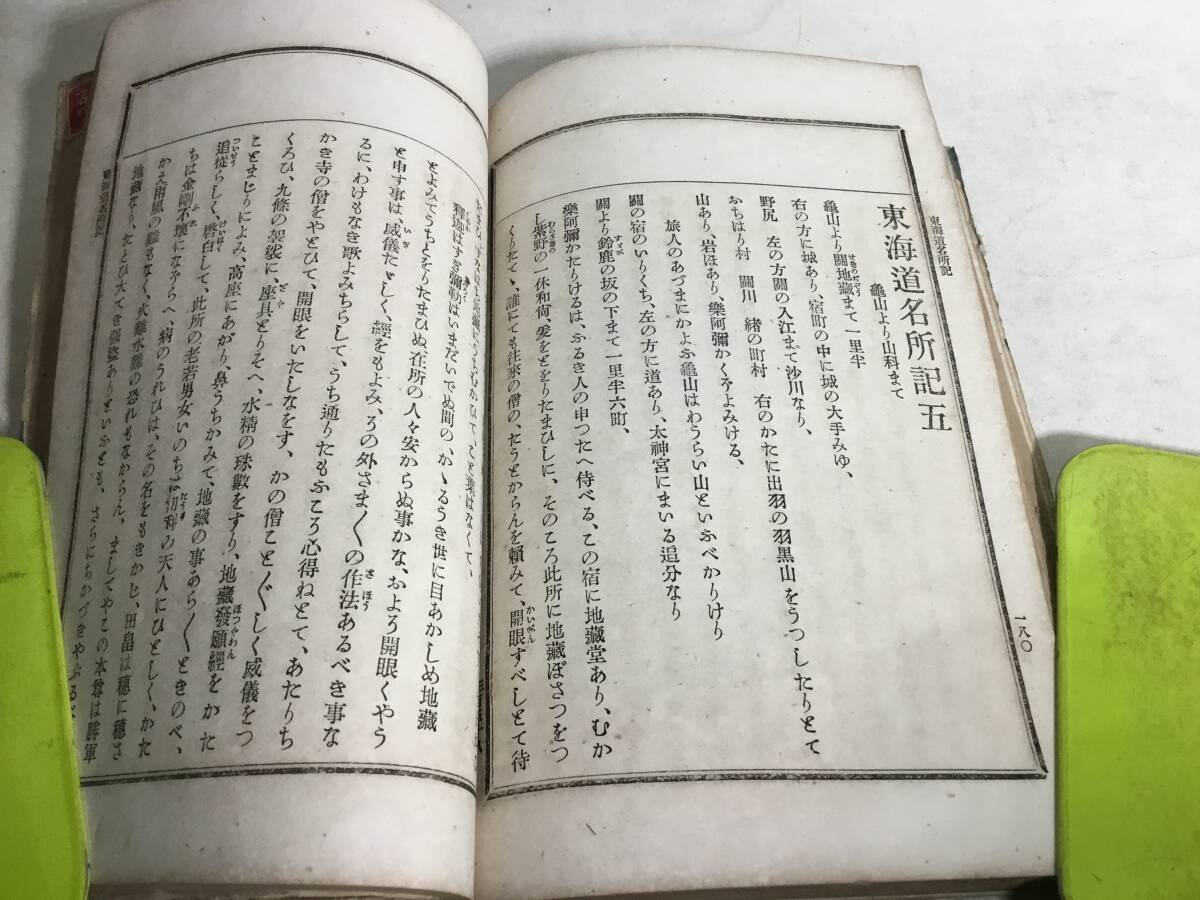 東海道名所記
一八〇
東海道名所記五
龜山より山科まて
龜山より關地藏まて一里半
右の方に城あり、宿町の中に城の大手みゆ、
野尻　左の方關の入江まて沙川なり、
おちはり村　關川　緒の町村　右のかたに出羽の羽黒山をうつしたりとて
山あり、岩ほあり、樂阿彌かくぞよみける、
旅人のあづまにかよふ龜山はわうらい山といふべかりけり
關の宿のいりくち、左の方に道あり、太神宮にまいる追分なり
關より鈴鹿の坂の下まて一里半六町、
樂阿彌かたりけるは、ふるき人の申つたへ侍べる、この宿に地藏堂あり、むか
し紫野の一休和尙、爰をとをりたまひしに、そのころ此所に地藏ぼさつをつ
くりたて、誰にても往來の僧の、たうとからんを賴みて、開眼すべしとて待
釋迦はすぎ彌勒はいまだいでぬ間の、かゝるうき世に目あかしめ地藏
とよみてうちとをりたまひぬ在所の人々安からぬ事かな、およろ開眼くやう
と申す事は、威儀たゞしく、經をもよみ、ろの外さま〲の作法あるべき事な
るに、わけもなき歌よみちらして、うち通りたもふころ心得ねとて、あたりち
かき寺の僧をやとひて、開眼をいたしなをす、かの僧ことぐしく威儀をつ
くろひ、九條の袈裟に、座具とりそへ、水精の珠數をすり、地藏發願經をかた
ことまじりによみ、高座にあがり、鼻うちかみて、地藏の事あら〱ときのべ、
追從らしく、啓白して、此所の老若男女いのちは忉利の天人にひとしく、かた
ちは金剛不壞になぞらへ、病のうれひは、その名をもきかじ、田畠は穗に穗さ
かえ雨風の難もなく、火難水難の恐れもなからん、ましてやこの本尊は勝軍
地藏なり、たとひ大てき强盜ありといふとも、さらにちかづきやぶる